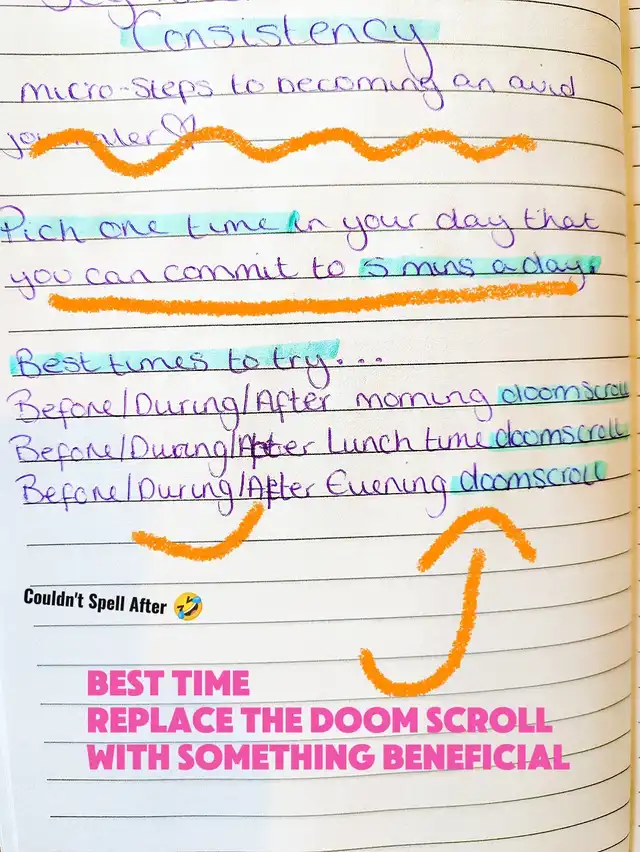 Consistency
micro-steps to becoming an avid
journaler♡
Pick one time in your day that
you can commit to 5 mins a day.
Best times to try....
Before/During/After morning doomscroll
Before/During/After Lunch time doomscroll
Before/During/After Evening doomscroll
Couldn't Spell After 🤣
BEST TIME
REPLACE THE DOOM SCROLL
WITH SOMETHING BENEFICIAL